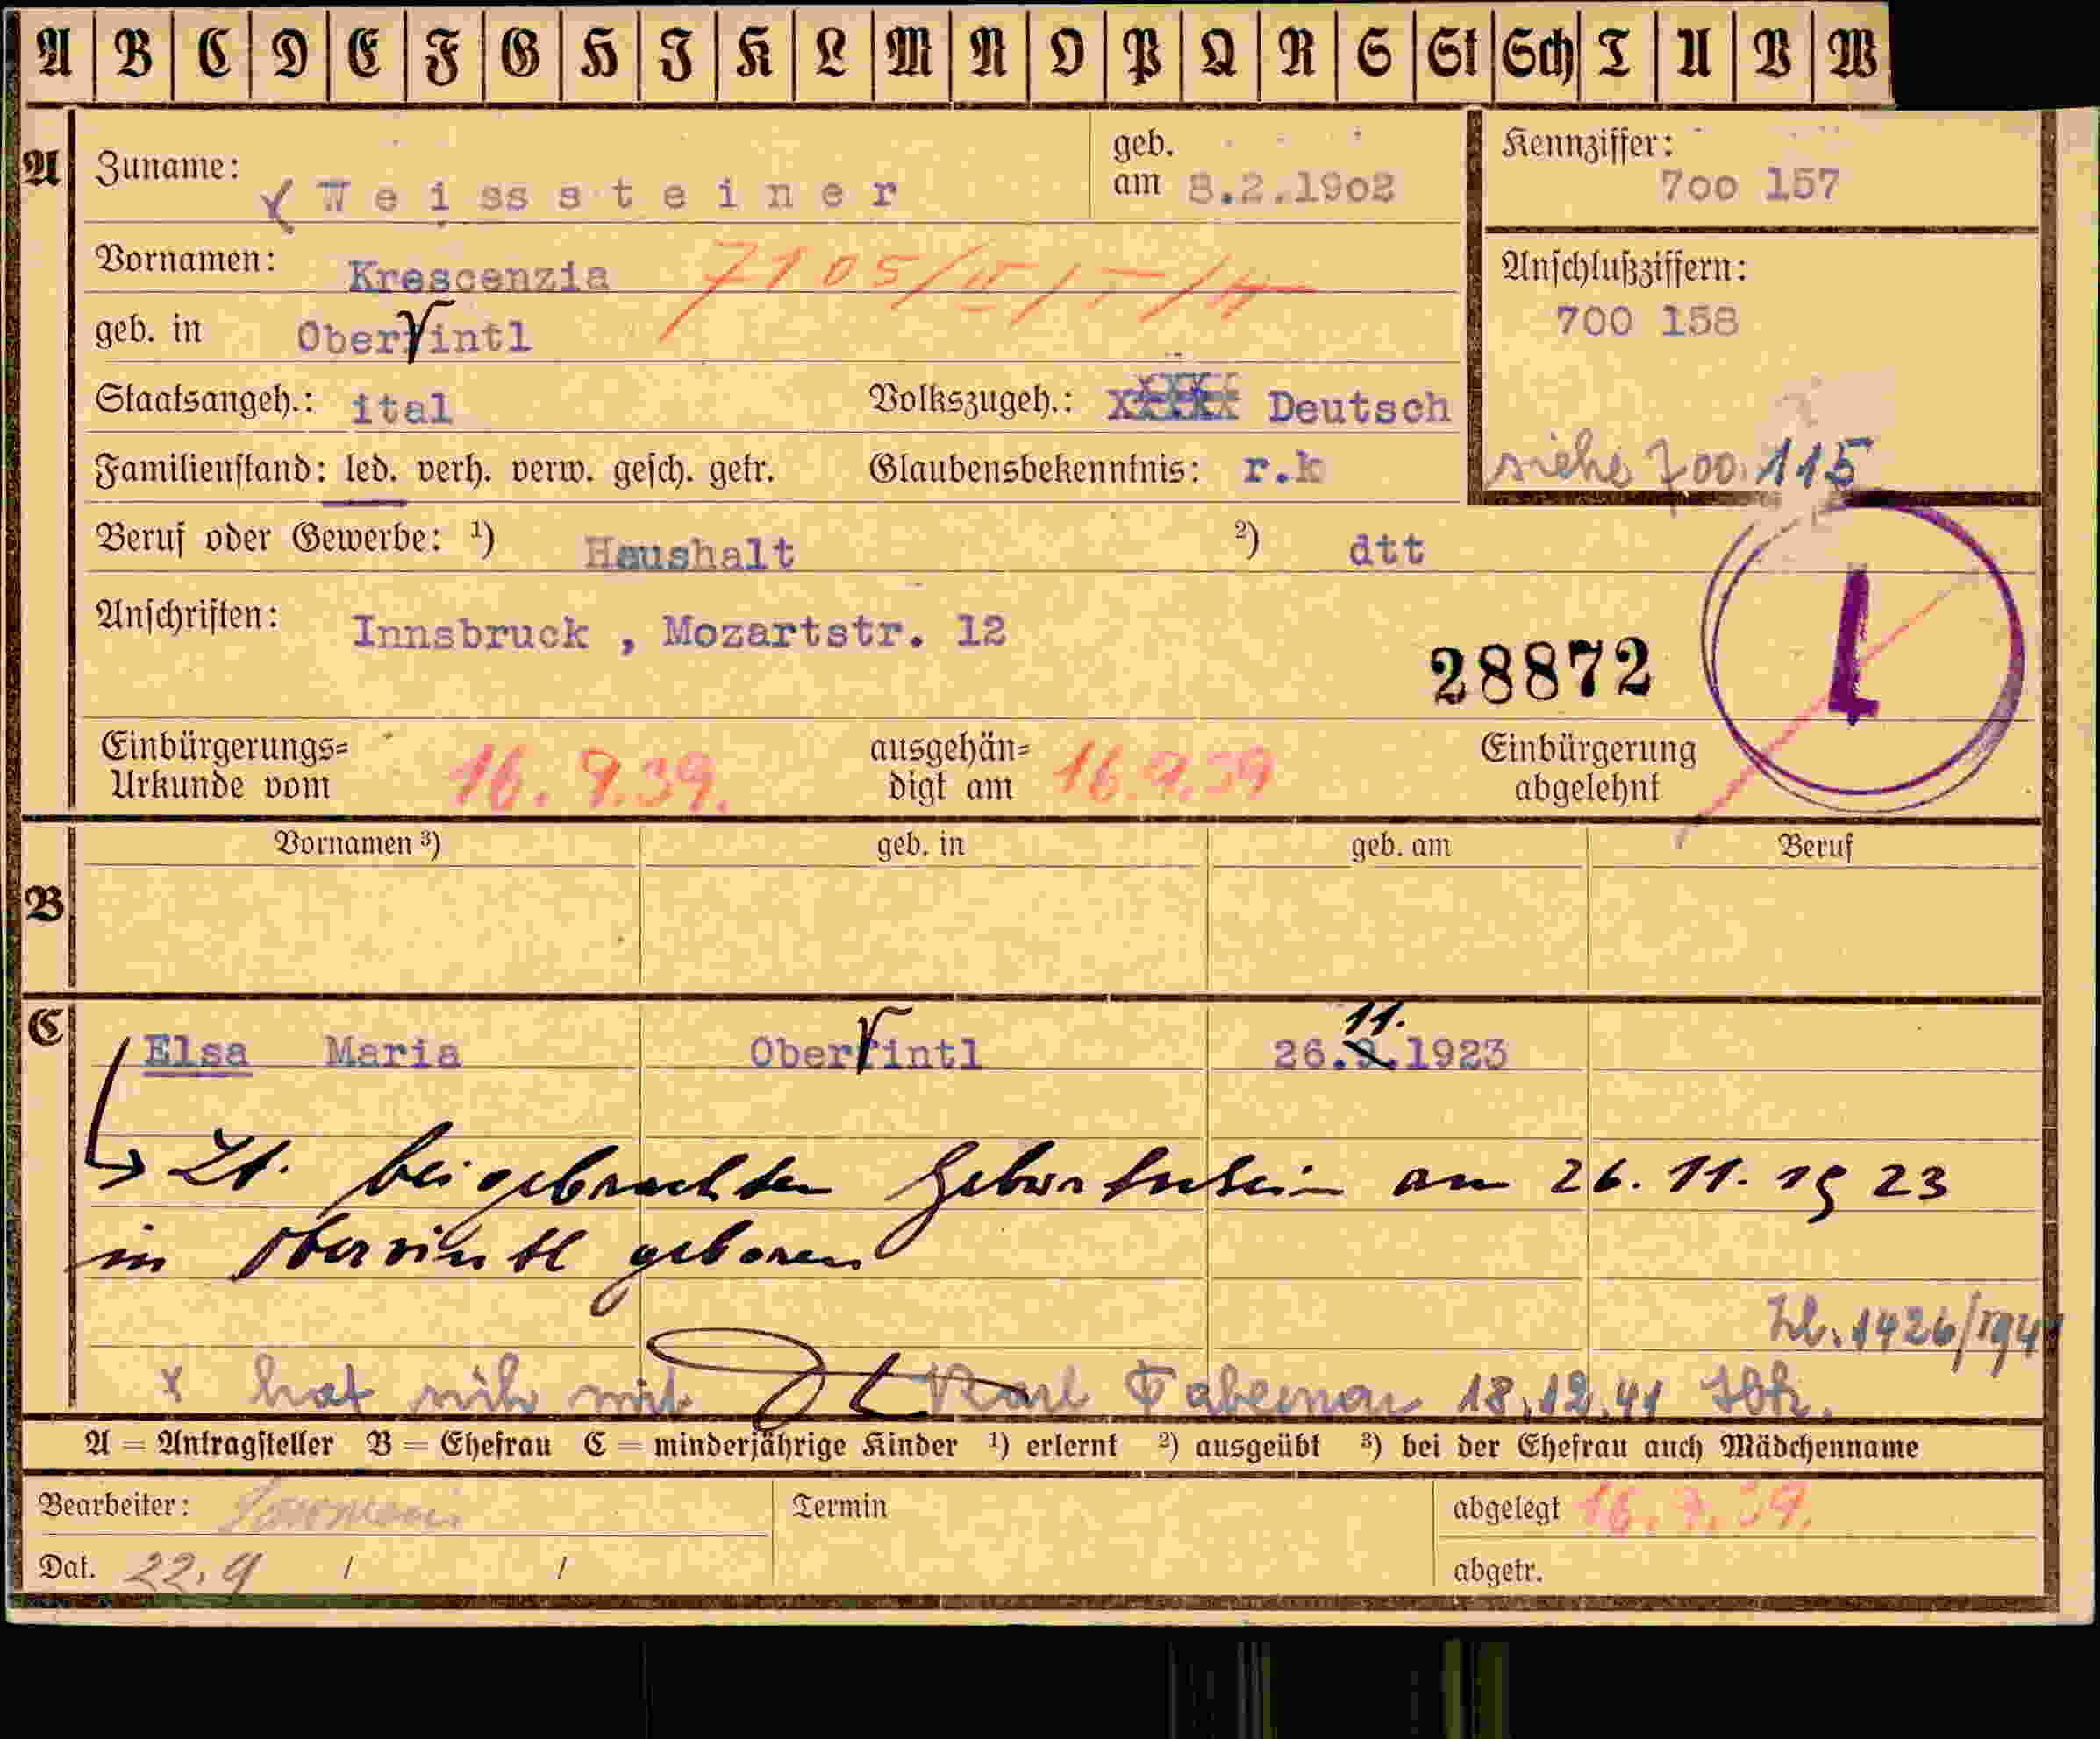 A B C D E F G H J K L M N O P Q R S St Sch T U V W
A
Zuname: Weisssteiner
geb. am 8.2.1902
Kennziffer: 700 157
Vornamen: Krescenzia
7105/II/
Anschlußziffern:
700 158
geb. in Obervintl
Staatsangeh.: ital
Volkszugeh.: Deutsch
siehe 700.115
Familienstand: led. verh. verw. gesch. getr.
Glaubensbekenntnis: r.k
Beruf oder Gewerbe: ¹) Haushalt ²) dtt
Anschriften: Innsbruck , Mozartstr. 12
28872
1
Einbürgerungs=
Urkunde vom 16.9.39.
ausgehän=
digt am 16.9.39
Einbürgerung
abgelehnt
B
Vornamen ³) geb. in geb. am Beruf
C
11.
Elsa Maria Obervintl 26.9.1923
Lt. beigebrachten Geburtsschein am 26.11.1923
in Obervintl geboren
Zl. 1426/1941
x hat sich mit Karl 18.12.41 Ibk.
A = Antragsteller B = Ehefrau C = minderjährige Kinder ¹) erlernt ²) ausgeübt ³) bei der Ehefrau auch Mädchenname
Bearbeiter:
Termin
abgelegt 16.9.39.
Dat. 22.9 / /
abgetr.